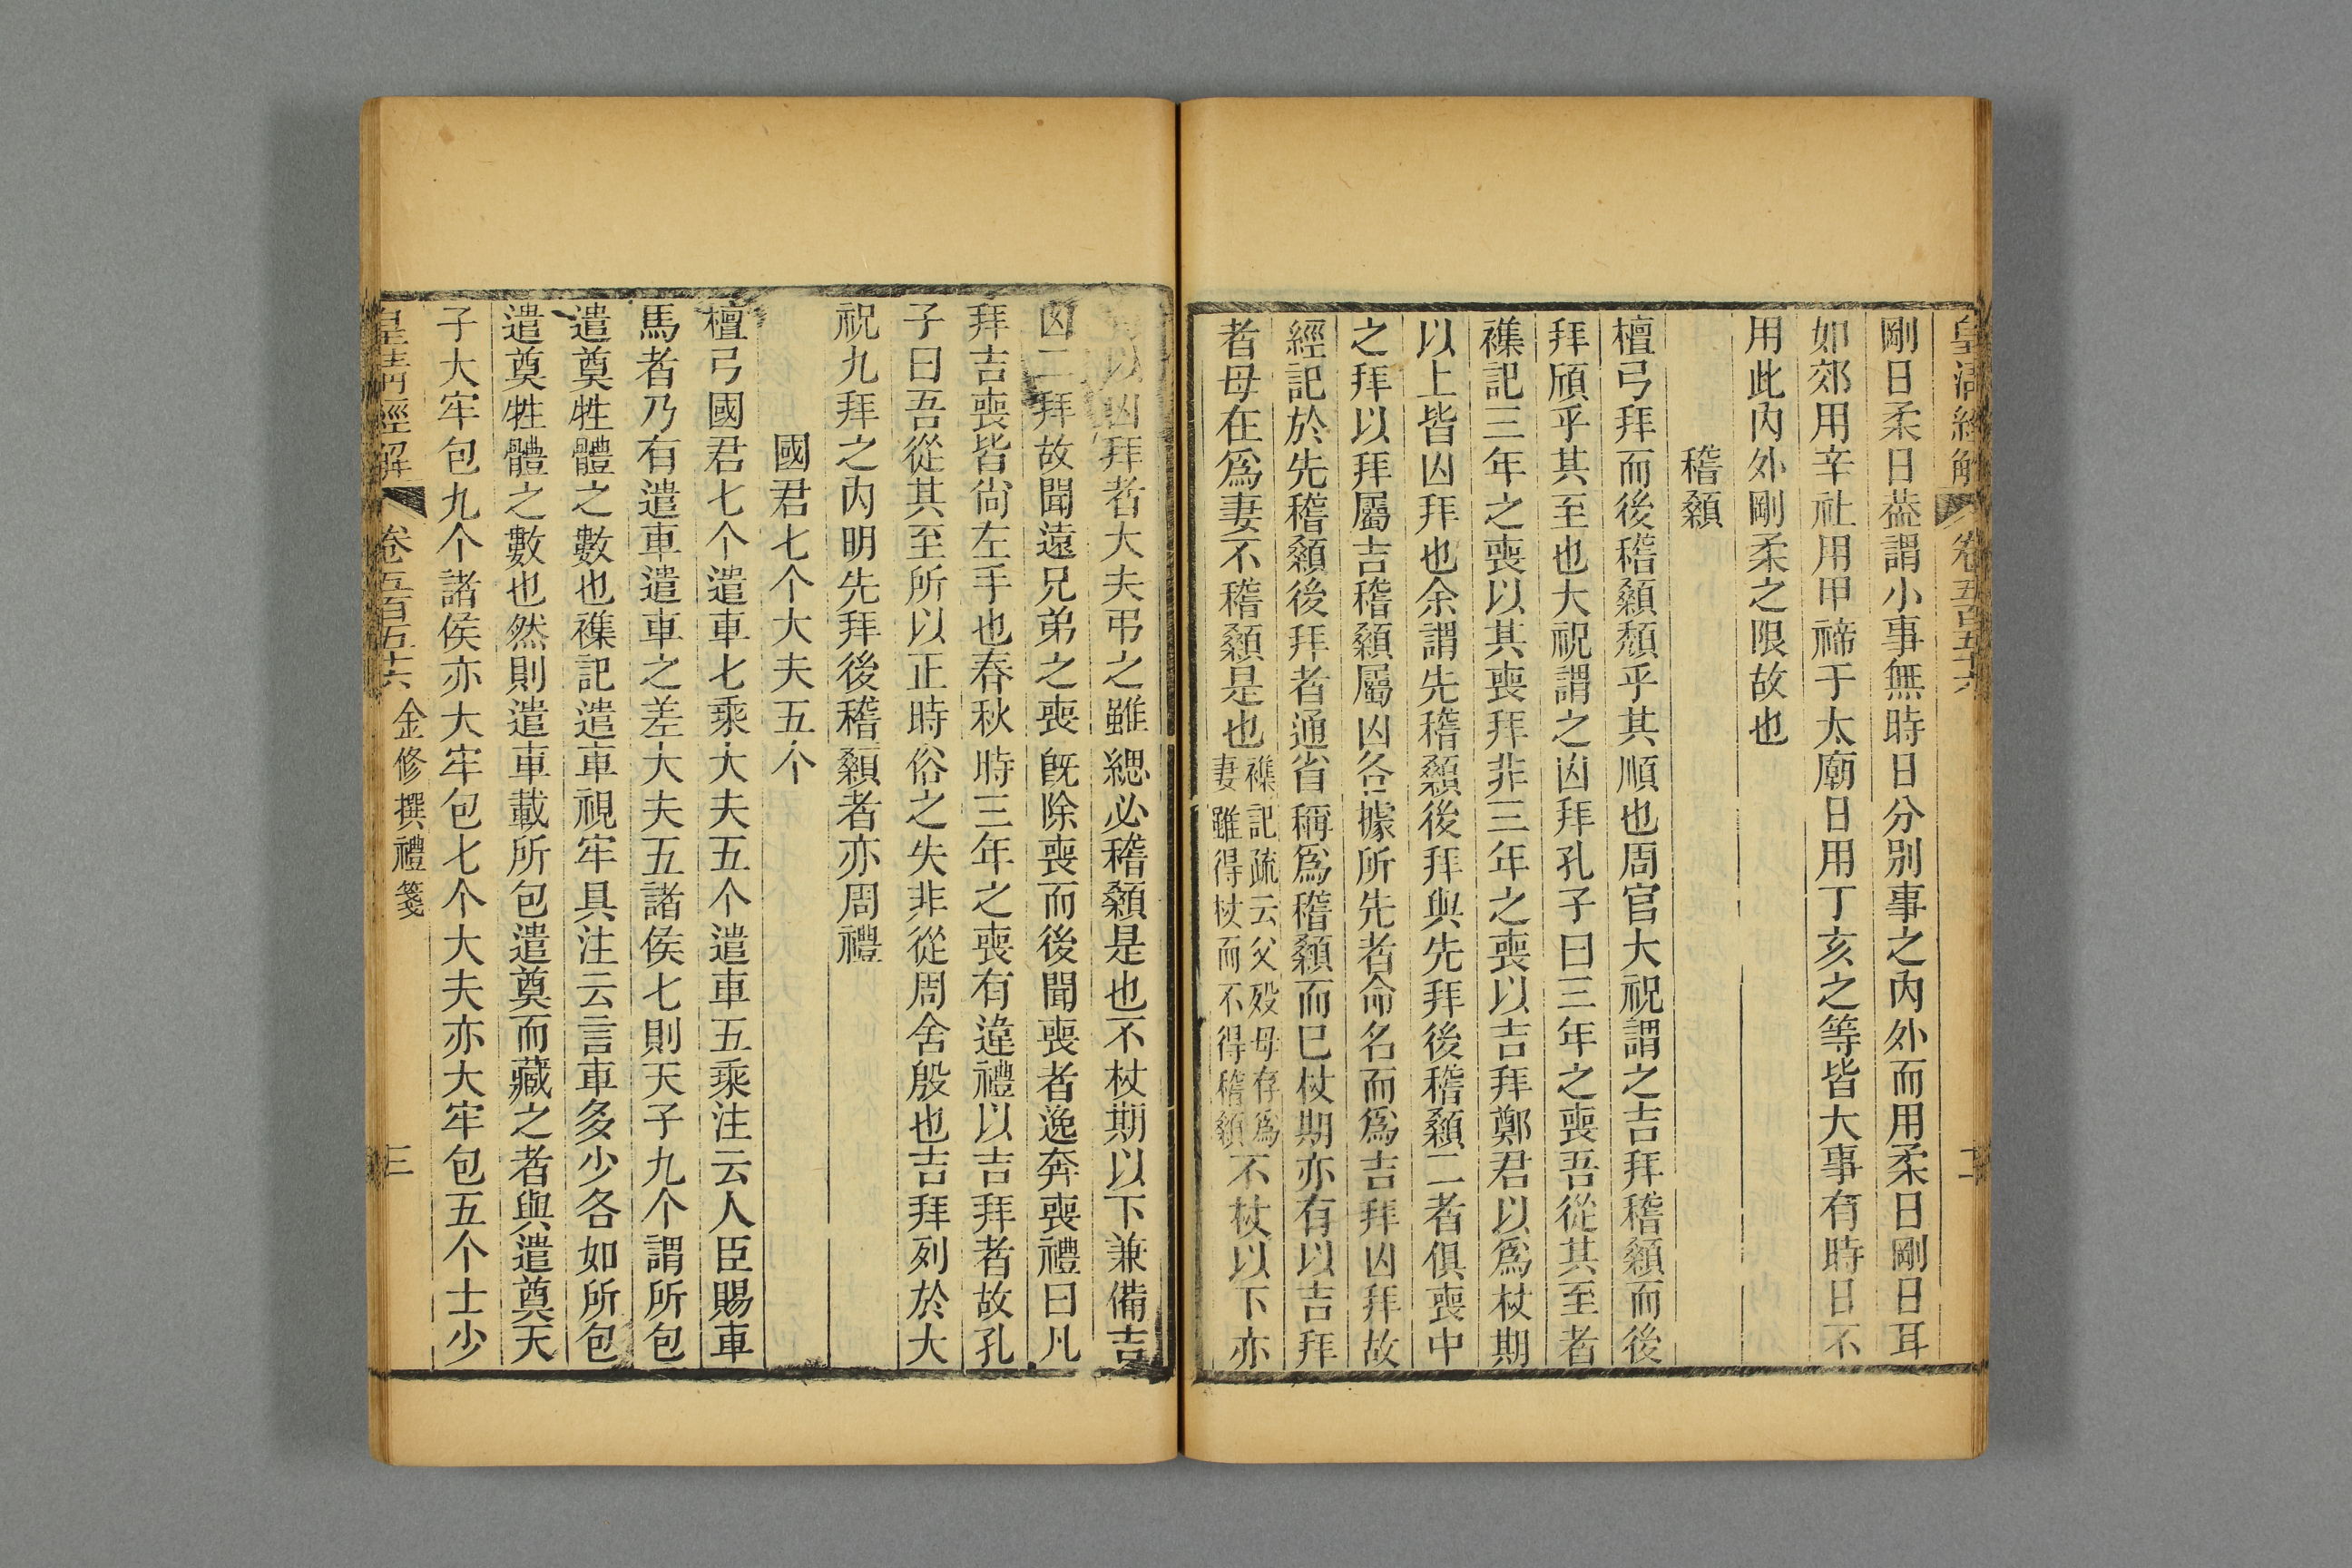 皇清經解 卷五百五十六 二
剛日柔日葢謂小事無時日分別事之內外而用柔日剛日耳
如郊用辛社用甲禘于太廟日用丁亥之等皆大事有時日不
用此內外剛柔之限故也
稽顙
檀弓拜而後稽顙頹乎其順也周官大祝謂之吉拜稽顙而後
拜頎乎其至也大祝謂之凶拜孔子曰三年之喪吾從其至者
襍記三年之喪以其喪拜非三年之喪以吉拜鄭君以爲杖期
以上皆凶拜也余謂先稽顙後拜與先拜後稽顙二者俱喪中
之拜以拜屬吉稽顙屬凶各據所先者命名而爲吉拜凶拜故
經記於先稽顙後拜者通省稱爲稽顙而已杖期亦有以吉拜
者母在爲妻不稽顙是也襍記疏云父歿母存爲妻雖得杖而不得稽顙不杖以下亦
以凶拜者大夫弔之雖緦必稽顙是也不杖期以下兼備吉
凶二拜故聞遠兄弟之喪旣除喪而後聞喪者逸奔喪禮曰凡
拜吉喪皆尙左手也春秋時三年之喪有違禮以吉拜者故孔
子曰吾從其至所以正時俗之失非從周舍殷也吉拜列於大
祝九拜之內明先拜後稽顙者亦周禮
國君七个大夫五个
檀弓國君七个遣車七乘大夫五个遣車五乘注云人臣賜車
馬者乃有遣車遣車之差大夫五諸侯七則天子九个謂所包
遣奠牲體之數也襍記遣車視牢具注云言車多少各如所包
遣奠牲體之數也然則遣車載所包遣奠而藏之者與遣奠天
子大牢包九个諸侯亦大牢包七个大夫亦大牢包五个士少
皇淸經解 卷五百五十六 金修撰禮箋 三